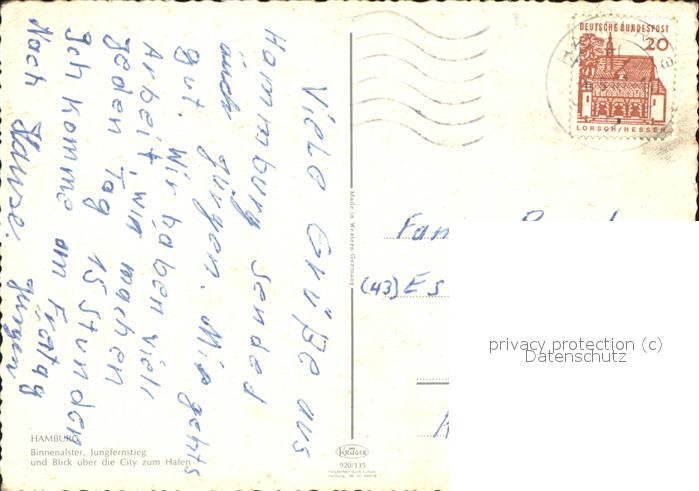 Viele Grüße aus
Hammburg sended
auch Jürgen. Mir gehts
gut. Wir haben viel
Arbeit, wir machen
jeden Tag 15 Stunden
Ich komme am Freitag
Nach Hause. Jürgen
HAMBURG
Binnenalster, Jungfernstieg
und Blick über die City zum Hafen
Made in Western Germany
KRÜGER
920/135
DEUTSCHE BUNDESPOST
20
LORSCH/HESSEN
Fam
(43) Es
privacy protection (c)
Datenschutz